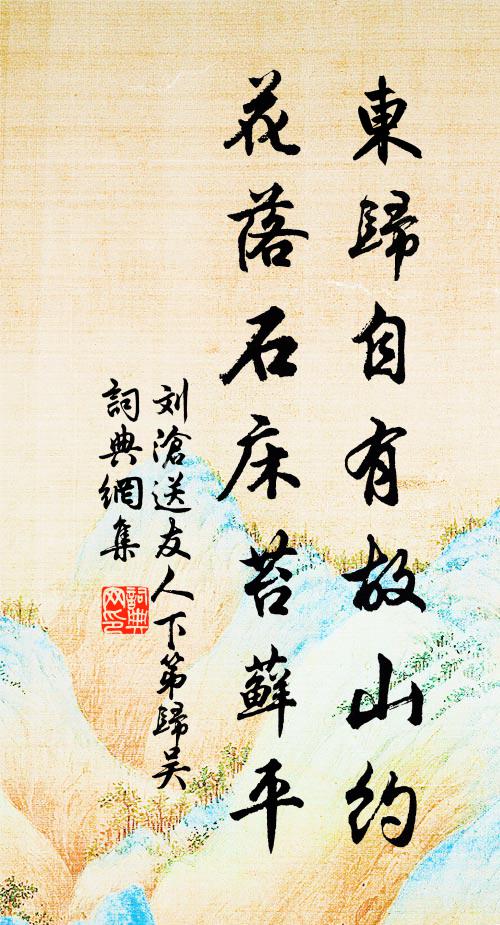 東歸自有故山約
花落石床苔蘚平
刘滄送友人下第歸吴
詞典網集
詞典网印